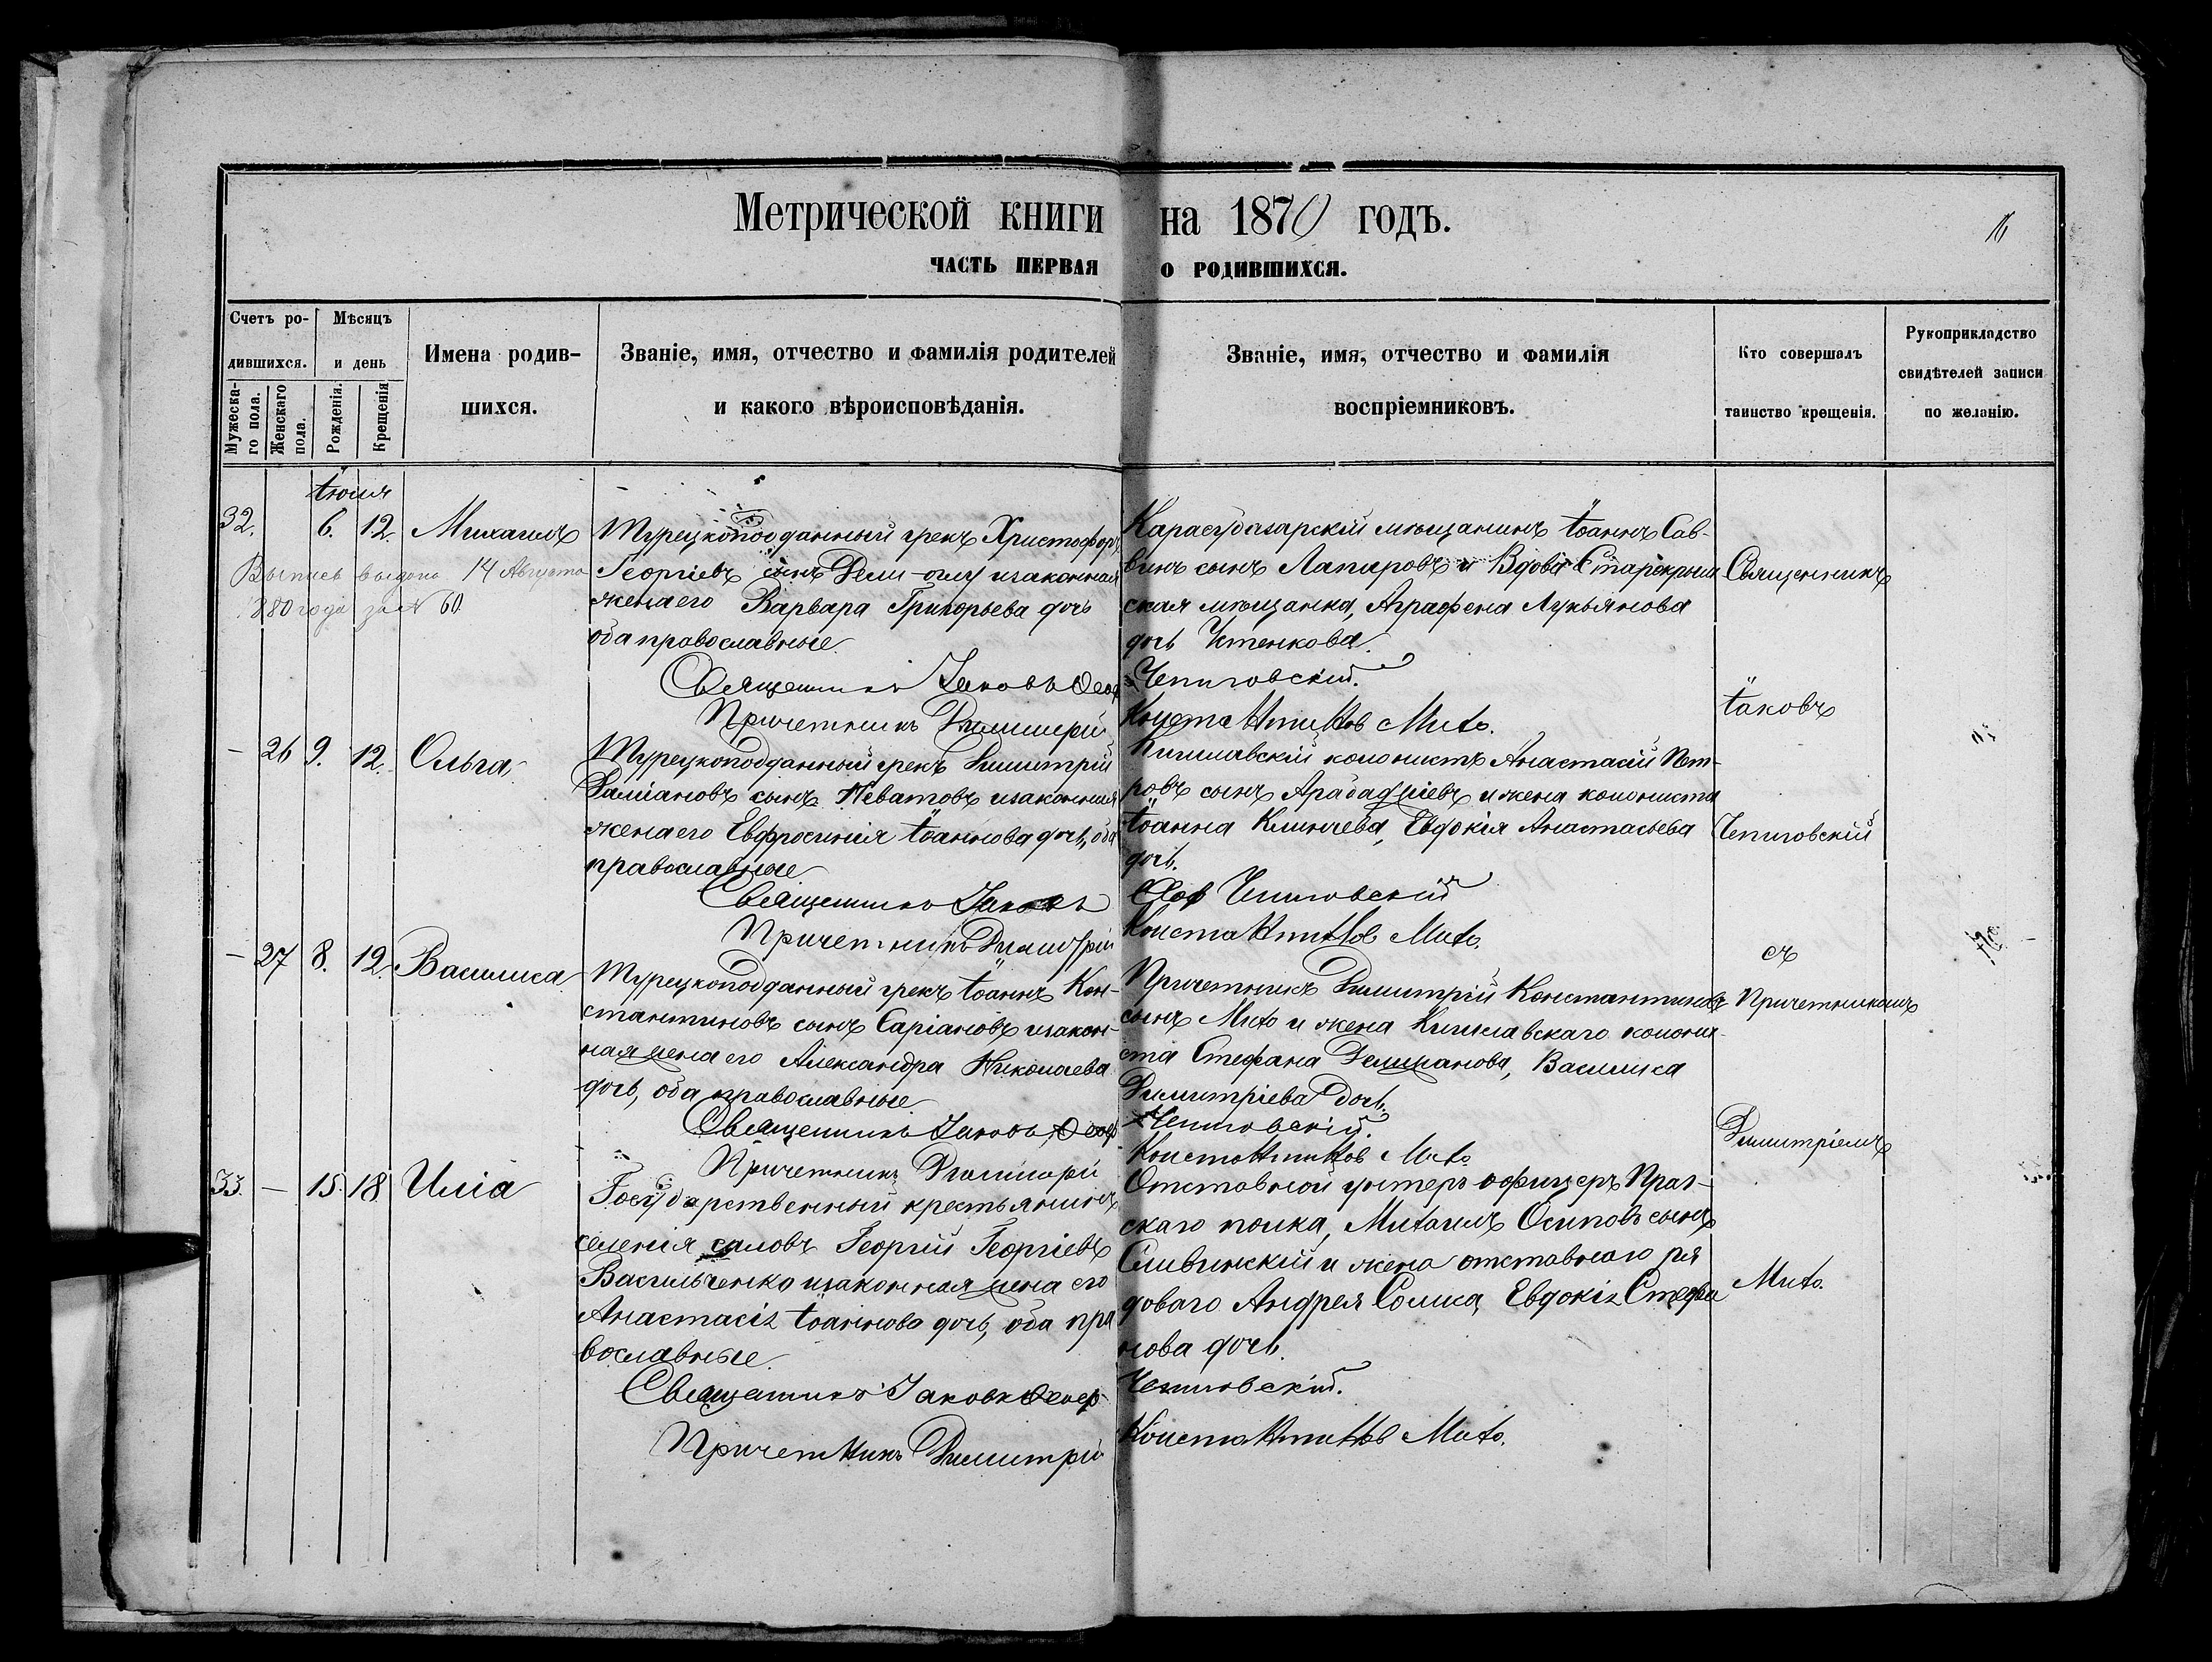 Метрической книги на 1870 годъ.
16
ЧАСТЬ ПЕРВАЯ О РОДИВШИХСЯ.
Счетъ ро-
дившихся.
Мужеска-
го пола.
Женскаго
пола.
Мѣсяцъ
и день
Рожденія.
Крещенія
Имена родив-
шихся.
Званіе, имя, отчество и фамилія родителей
и какого вѣроисповѣданія.
Званіе, имя, отчество и фамилія
воспріемниковъ.
Кто совершалъ
таинство крещенія.
Рукоприкладство
свидѣтелей записи
по желанію.
Іюня
32. 6. 12. Михаилъ
Выпись выдана 14 Августа
880 года за № 60.
Турецкоподданный грекъ Христофоръ
Георгіевъ сынъ Дели-оглу и законная
жена его Варвара Григорьева дочь
оба православные.
Священникъ Іаковъ
Причетникъ Димитрій
Карасубазарскій мѣщанинъ Іоаннъ Сав-
винъ сынъ Лапаровъ и Вдова Старокрым
ская мѣщанка, Аграфена Лукьянова
дочь
Чепиговскій.
Константиновъ Михо.
– 26 9. 12. Ольга
Турецкоподданный грекъ Димитрій
Даміановъ сынъ Неватовъ и законная
жена его Евфросинія Іоаннова дочь, оба
православные
Священникъ Іаковъ
Причетникъ Димитрій
Кишлавскій колонистъ Анастасій Пет-
ровъ сынъ Арабаджіевъ и жена колониста
Іоанна Клинчева, Евдокія Анастасьева
дочь.
Чепиговскій
Константиновъ Михо.
– 27 8. 12. Василиса
Турецкоподданный грекъ Іоаннъ Кон-
стантиновъ сынъ Саріановъ и закон-
ная жена его Александра Николаева
дочь, оба православные.
Священникъ Іаковъ
Причетникъ Димитрій
Причетникъ Димитрій Константиновъ
сынъ Михо и жена Кишлавскаго колони-
ста Стефана Делиманова, Василиса
Димитріева дочь.
Чепиговскій.
Константиновъ Михо
33. – 15. 18 Илія
Государственный крестьянинъ
селенія Георгій Георгіевъ
Васильченко и законная жена его
Анастасія Іоаннова дочь, оба пра
вославные.
Священникъ Іаковъ
Причетникъ Димитрій
Отставной унтеръ офицеръ Праг-
скаго полка, Михаилъ Осиповъ сынъ
Сливинскій и жена отставнаго ря
доваго Андрея Солиса, Евдокія Стефа
нова дочь.
Чепиговскій.
Константиновъ Михо.
Священникъ
Іаковъ
Чепиговскій
съ
Причетникомъ
Димитріемъ
Михо.